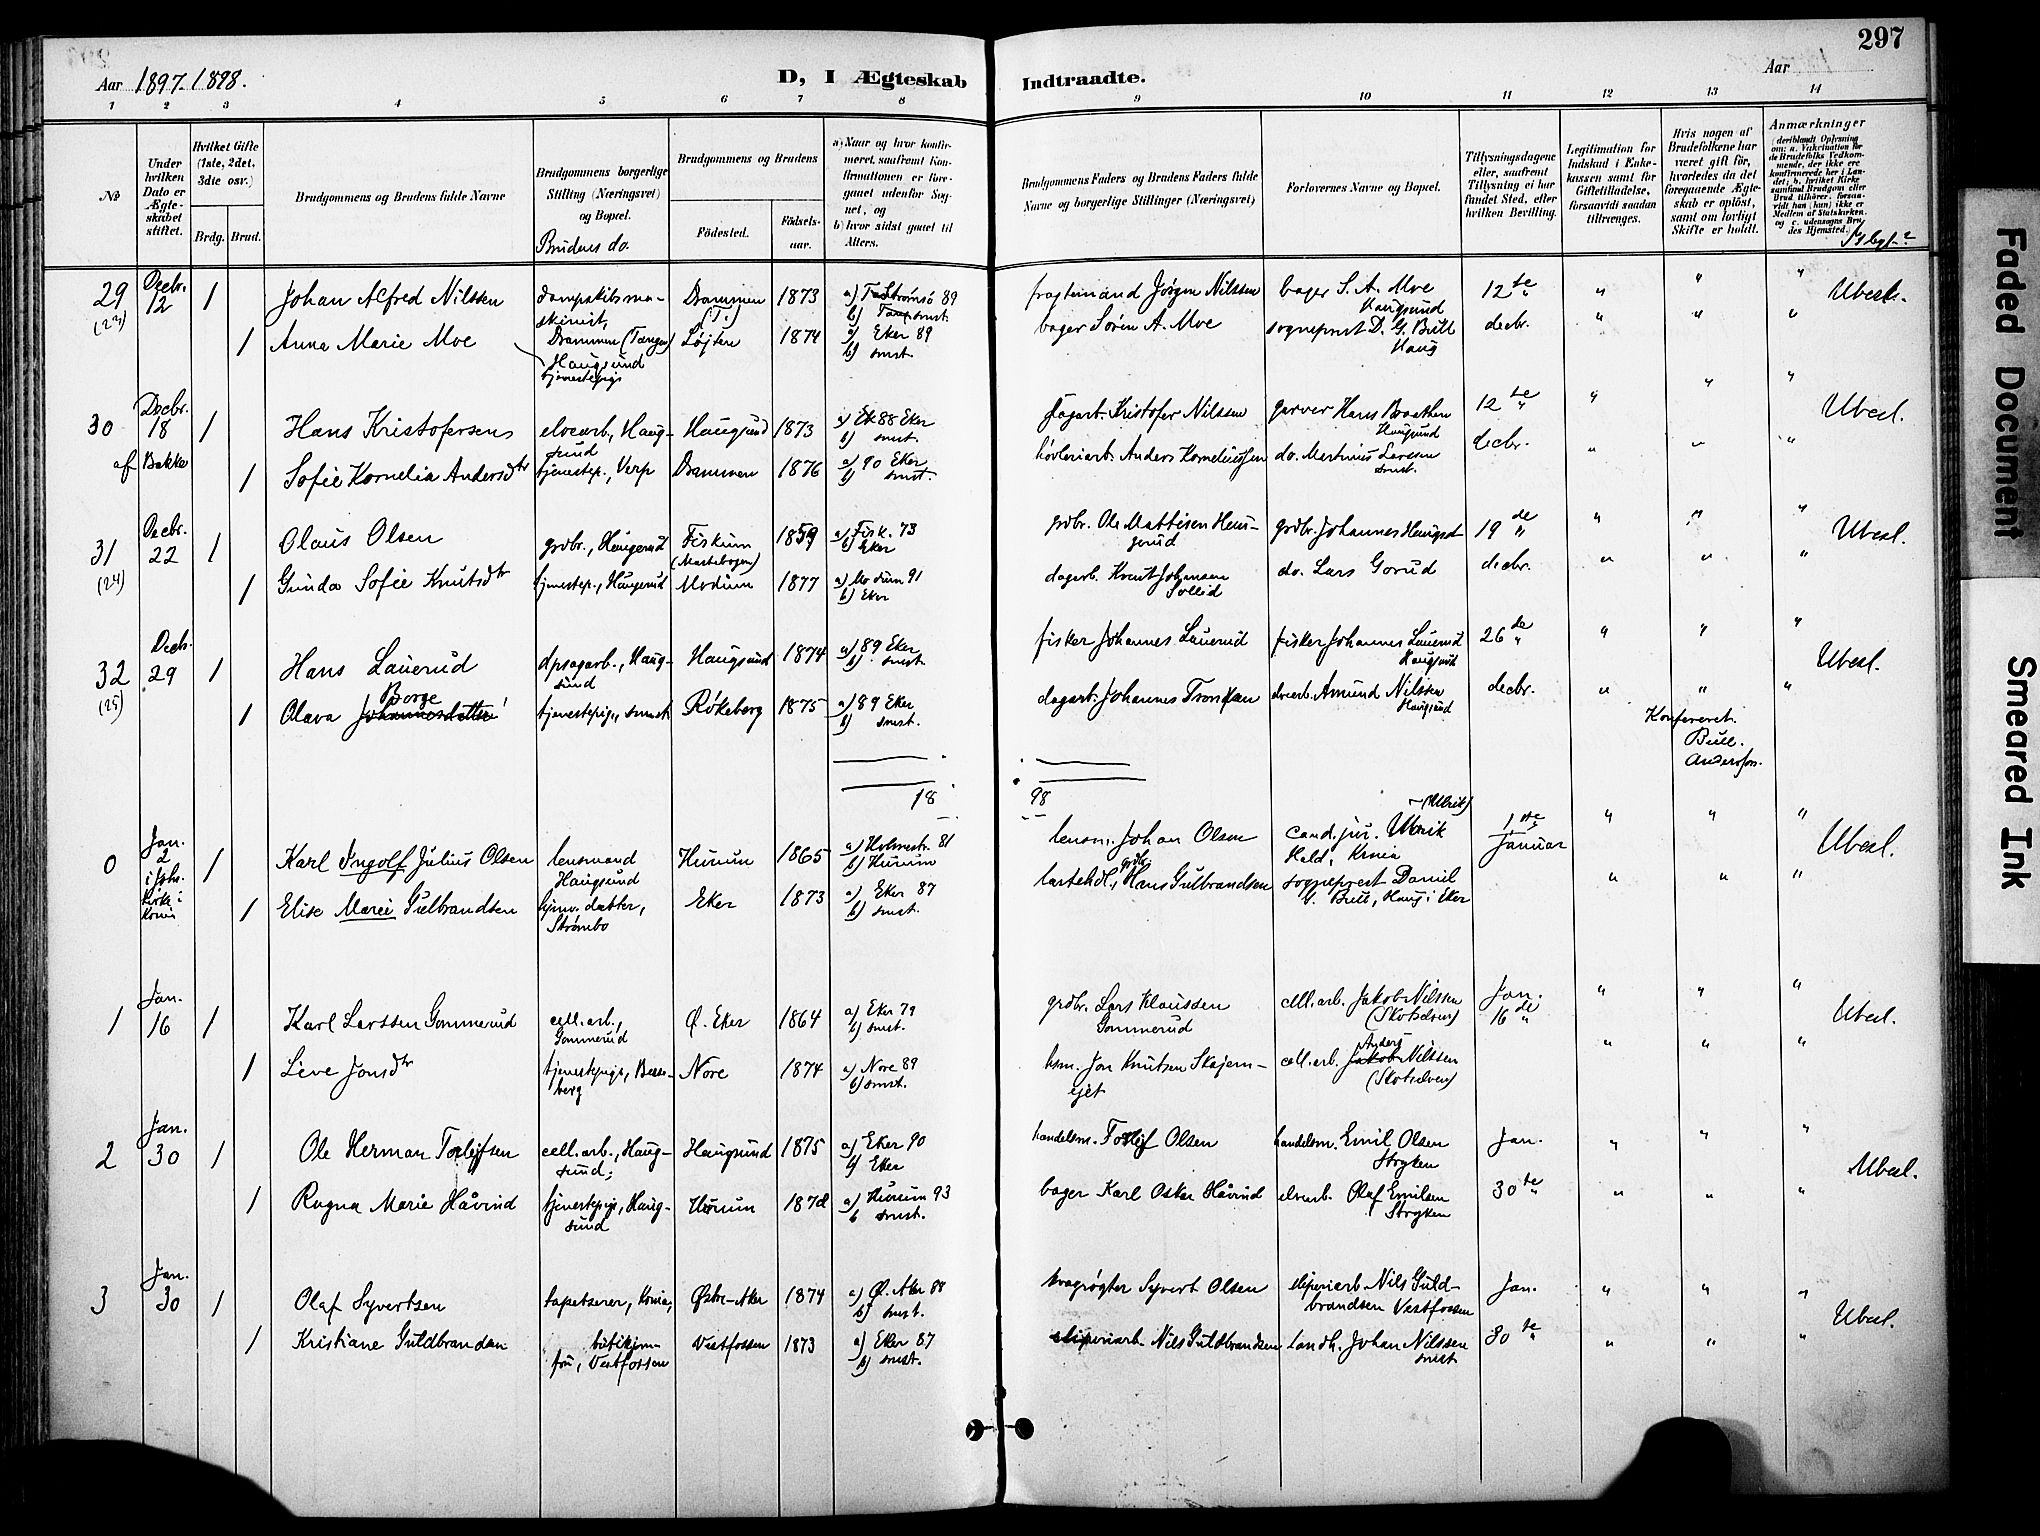 297
Aar 1897-1898.
D, I Ægteskab Indtraadte.
Aar
1 2 3 4 5 6 7 8 9 10 11 12 13 14
№
Under hvilken Dato er Ægteskabet stiftet.
Hvilket Gifte (1ste, 2det, 3die osv.)
Brdg. Brud.
Brudgommens og Brudens fulde Navne
Brudgommens borgerlige Stilling (Næringsvei) og Bopæl.
Brudens do.
Brudgommens og Brudens
Fødested. Fødselsaar.
a) Naar og hvor konfirmeret, saafremt Konfirmationen er foregaaet udenfor Sognet, og
b) hvor sidst gaaet til Alters.
Brudgommens Faders og Brudens Faders fulde Navne og borgerlige Stillinger (Næringsvei)
Forlovernes Navne og Bopæl.
Tillysningsdagene eller, saafremt Tillysning ei har fundet Sted, efter hvilken Bevilling.
Legitimation for Indskud i Enkekassen samt for Giftetilladelse, forsaavidt saadan tiltrænges.
Hvis nogen af Brudefolkene har været gift før, hvorledes da det foregaaende Ægteskab er opløst, samt om lovligt Skifte er holdt.
Anmærkninger (deriblandt Oplysning om: a. Vakcination for de Brudefolks Vedkommende, der ikke ere konfirmerede her i Landet; b. hvilket Kirke samfund Brudgom eller Brud tilhører, forsaavidt han (hun) ikke er Medlem af Statskirken. og c. udensogns Brudes Hjemsted.)
29 (23) Decbr. 12 1 Johan Alfred Nilssen dampskibsmaskinist, Drammen (Tangen) Drammen (T.) 1873 b) smst. fragtemand Jørgen Nilssen bager S. A. Moe Haugsund 12te " " " " Ubesl.
1 Anna Marie Moe Haugsund tjenestepige Løjten 1874 a) Eker 89 b) smst. bager Søren A. Moe sogneprest D. G. Bull Haug decbr. " " "
30 af Bakke Decbr. 18 1 Hans Kristofersen elvearb., Haugsund Haugsund 1873 a) 88 Eker b) smst. dagarb. Kristofer Nilssen garver Hans Braathen Haugsund 12te " " " " Ubesl.
1 Sofie Kornelia Andersdtr tjenestep., Verp Drammen 1876 a) 90 Eker b) smst. høvleriarb. Anders Korneliussen do. Martinius Larsen smst. decbr. " " "
31 (24) Decbr. 22 1 Olaus Olsen grdbr., Haugerud Fiskum 1859 a) Fisk. 73 b) Eker grdbr. Ole Mattisen Haugerud grdbr. Johannes Haugerud 19de " " " " Ubesl.
1 Gunda Sofie Knutsdtr tjenestep., Haugerud Modum 1877 a) Modum 91 b) Eker dagarb. Knut Johansen Sollid do. Lars Gorud decbr. " " "
32 (25) Decb. 29 1 Hans Lauerud dpsagarb., Haugsund Haugsund 1874 a) 89 Eker b) smst. fisker Johannes Lauerud fisker Johannes Lauerud Haugsund 26de " " " " Ubesl.
1 Olava Borge Johannesdatter tjenestepige, smst. Røkeberg 1875 a) 89 Eker b) smst. dagarb. Johannes elvearb. Amund Nilssen Haugsund decbr. " " "
Konfereret.
Bull.
Anderssen.
18 98
0 Jan. 2 i Joh. kirke i Kr.nia 1 Karl Ingolf Julius Olsen lensmand Haugsund Hurum 1865 a) Holmestr. 81 b) Hurum lensm. Johan Olsen cand. jur. Ulrik (Ulrik) Hald, Krnia 1ste Januar " " " Ubesl.
1 Elise Marei Gulbrandsen hjmv. datter, Strømbo Eker 1873 a) Eker 87 b) smst. lastehdl., grdbr. Hans Gulbrandsen sogneprest Daniel G. Bull, Haug i Eker " " "
1 Jan. 16 1 Karl Larssen Gommerud cell. arb., Gommerud Ø. Eker 1864 a) Eker 79 b) smst. grdbr. Lars Klaussen Gommerud cell. arb. Jakob Nilssen (Skotselven) Jan. 16de " " " " Ubesl.
1 Live Jonsdtr tjenestepige, Berg Nore 1874 a) Nore 89 b) smst. hsm. Jon Knutsen Skjerm-ejet cell. arb. Anders Jakob Nilssen (Skotselven) " " "
2 Jan. 30 1 Ole Herman Torleifsen cell. arb., Haugsund; Haugsund 1875 a) Eker 90 b) Eker handelsm. Torleif Olsen handelsm. Emil Olsen Stryken Jan. " " " Ubesl.
1 Ragna Marie Håvind tjenestepige, Haugsund Hurum 1872 a) Hurum 93 b smst. bager Karl Oskar Håvind elvearb. Olaf Emilsen Stryken 30te " " " "
3 Jan. 30 1 Olaf Syvertsen tapetserer, Krnia, Østre-Aker 1874 a) Ø. Aker 88 b) smst. kvægrøgter Syvert Olsen sliperiarb Nils Guldbrandsen Vestfossen Jan. " " " Ubesl.
1 Kristiane Guldbrandsen butikjomfru, Vestfossen Vestfossen 1873 a) Eker 87 b) smst. sliperiarb. Nils Guldbrandsen landh. Johan Nilssen smst 30te " " " "
Faded Document
Smeared Ink